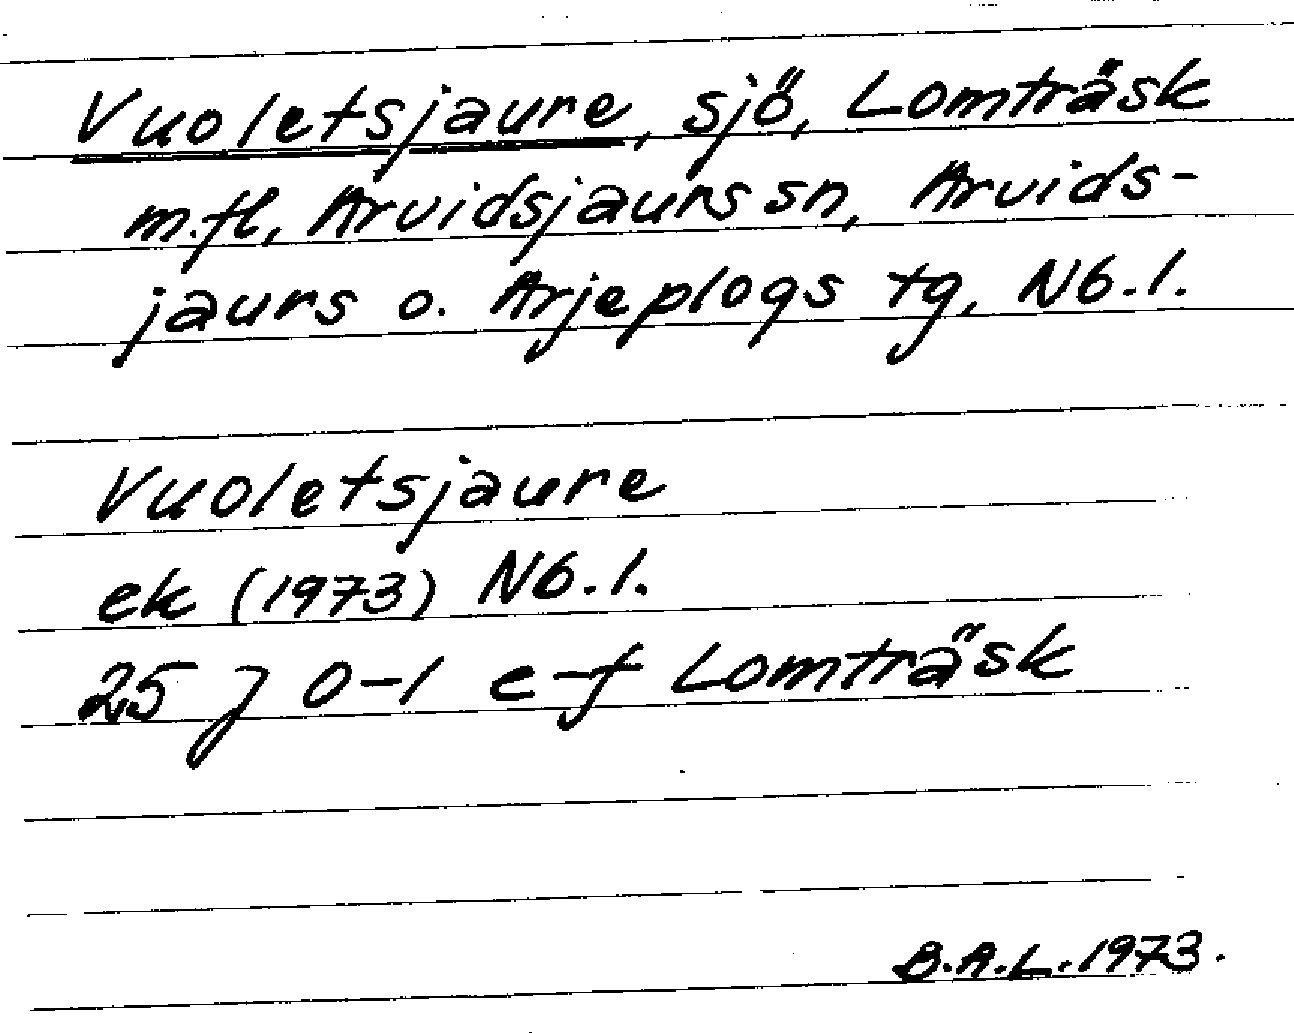 Vuoletsjaure, sjö, Lomträsk
m.fl, Arvidsjaurs sn, Arvids-
jaurs o. Arjeplogs tg, Nb.l.
Vuoletsjaure
ek (1973) Nb.l.
25 J 0-1 e-f Lomträsk
B.A.L. 1973.